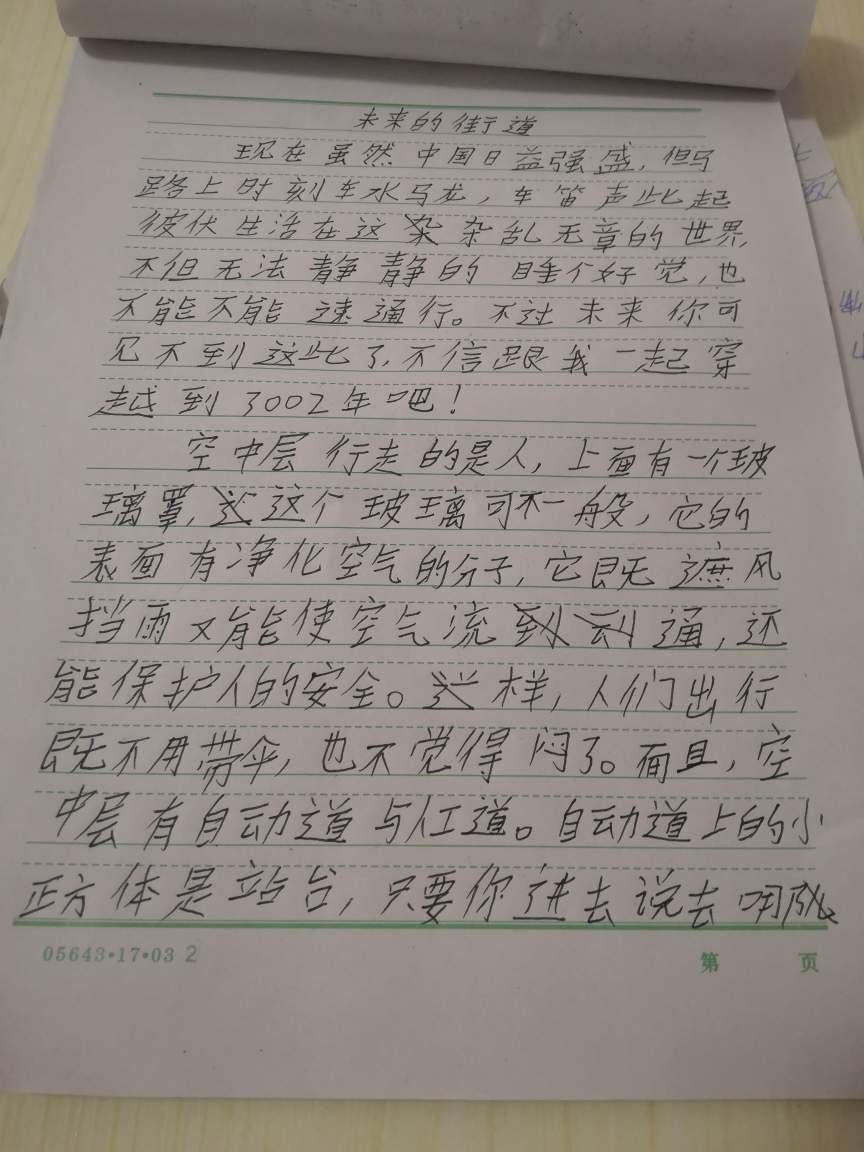 未来的街道
现在虽然中国日益强盛，但马
路上时刻车水马龙，车笛声此起
彼伏生活在这杂乱无章的世界，
不但无法静静的睡个好觉，也
不能不能速通行。不过未来你可
见不到这些了，不信跟我一起穿
越到3002年吧！
空中层行走的是人，上面有一个玻
璃罩，这个玻璃可不一般，它的
表面有净化空气的分子，它既遮风
挡雨又能使空气流通，还
能保护人的安全。样，人们出行
既不用带伞，也不觉得闷了。而且，空
中层有自动道与人工道。自动道上的小
正方体是站台，只要你进去说去哪
05643·17·03 2
第 页